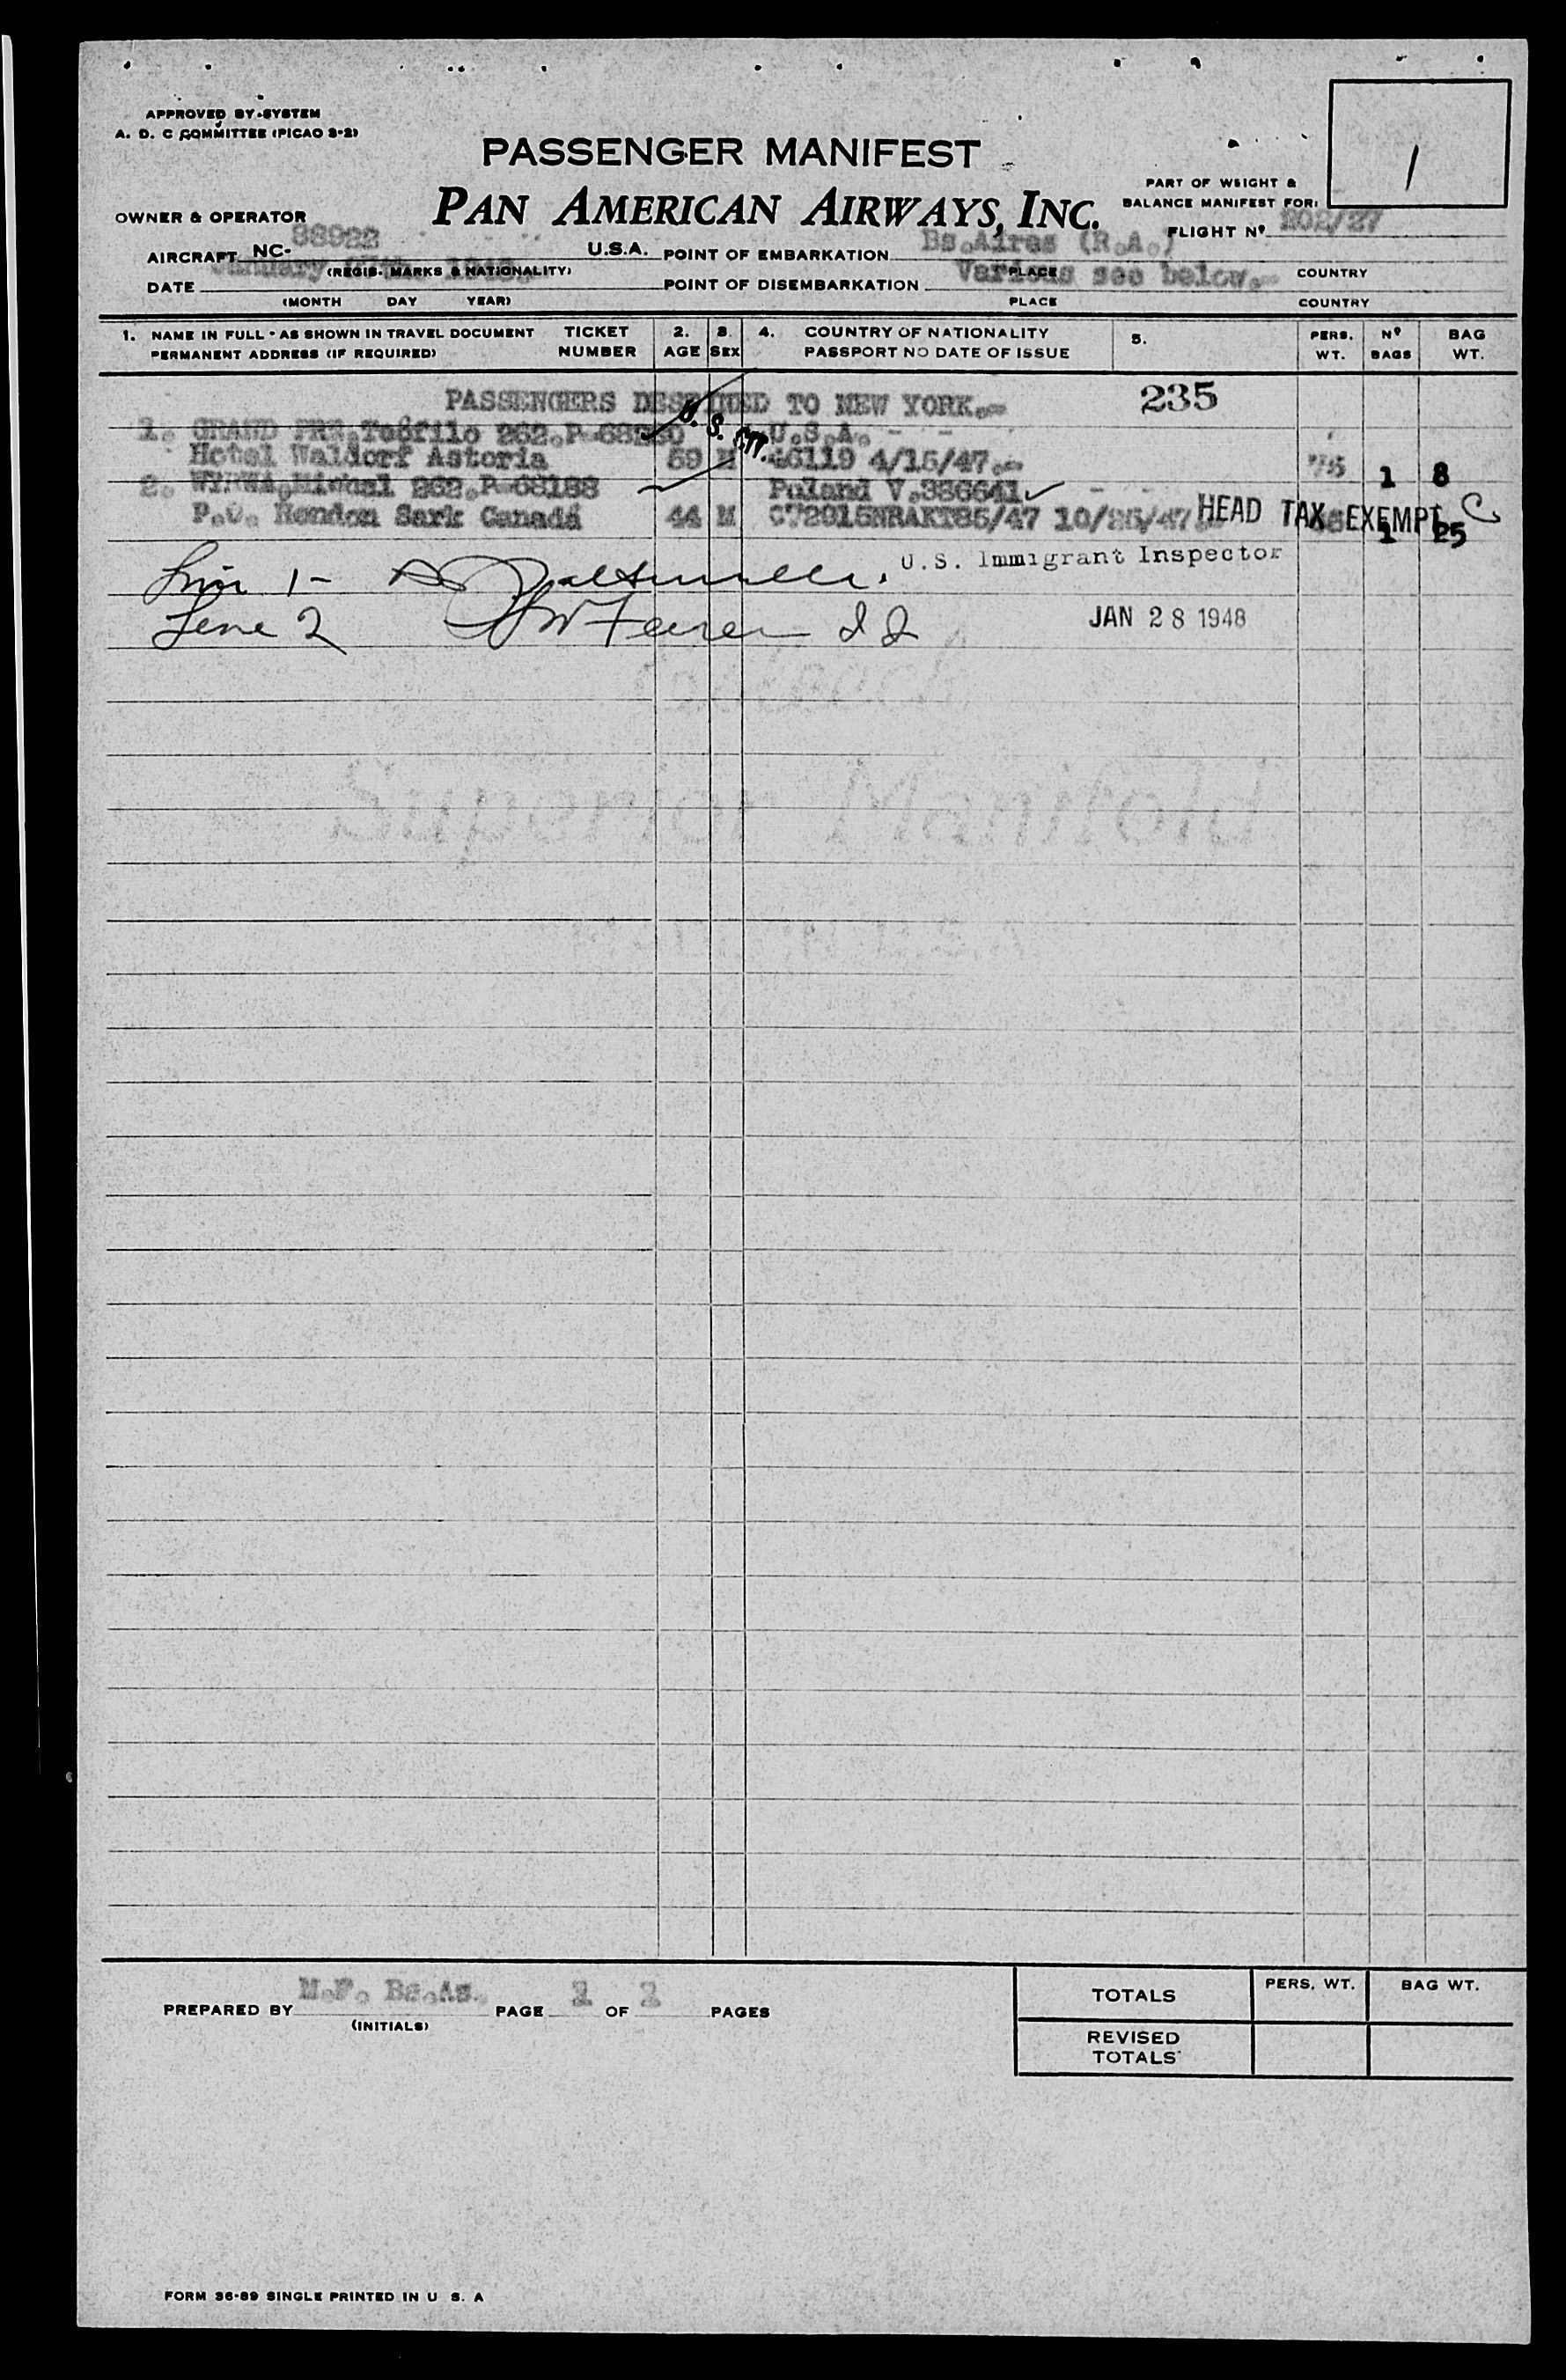 APPROVED BY SYSTEM
A. D. C COMMITTEE (PICAO 3-2)
PASSENGER MANIFEST
1
PAN AMERICAN AIRWAYS, INC.
PART OF WEIGHT &
BALANCE MANIFEST FOR:
OWNER & OPERATOR
FLIGHT Nº 202/27
AIRCRAFT NC- 88922 U.S.A. POINT OF EMBARKATION Bs.Aires (R.A.)
(REGIS. MARKS & NATIONALITY) PLACE COUNTRY
DATE January 1948. POINT OF DISEMBARKATION Various see below.-
(MONTH DAY YEAR) PLACE COUNTRY
1. NAME IN FULL - AS SHOWN IN TRAVEL DOCUMENT TICKET 2. 3. 4. COUNTRY OF NATIONALITY 5. PERS. Nº BAG
PERMANENT ADDRESS (IF REQUIRED) NUMBER AGE SEX PASSPORT NO DATE OF ISSUE WT. BAGS WT.
PASSENGERS DESTINED TO NEW YORK.-- 235
1. GRAND Teófilo 262.P U.S.A. - -
U. S.
Hotel Waldorf Astoria 59 M 46119 4/15/47.-- 75 1 8
2. Michal 262.P-68188 Poland V.336641 - -
P.O. Sark Canadá 44 M 10/25/47 HEAD TAX EXEMPT 1 25
U.S. Immigrant Inspector
Line 1-
Line 2
JAN 28 1948
Superior Manifold
PREPARED BY M.F. Bs.As. PAGE 1 OF 1 PAGES
(INITIALS)
TOTALS PERS. WT. BAG WT.
REVISED
TOTALS
FORM 36-89 SINGLE PRINTED IN U S. A